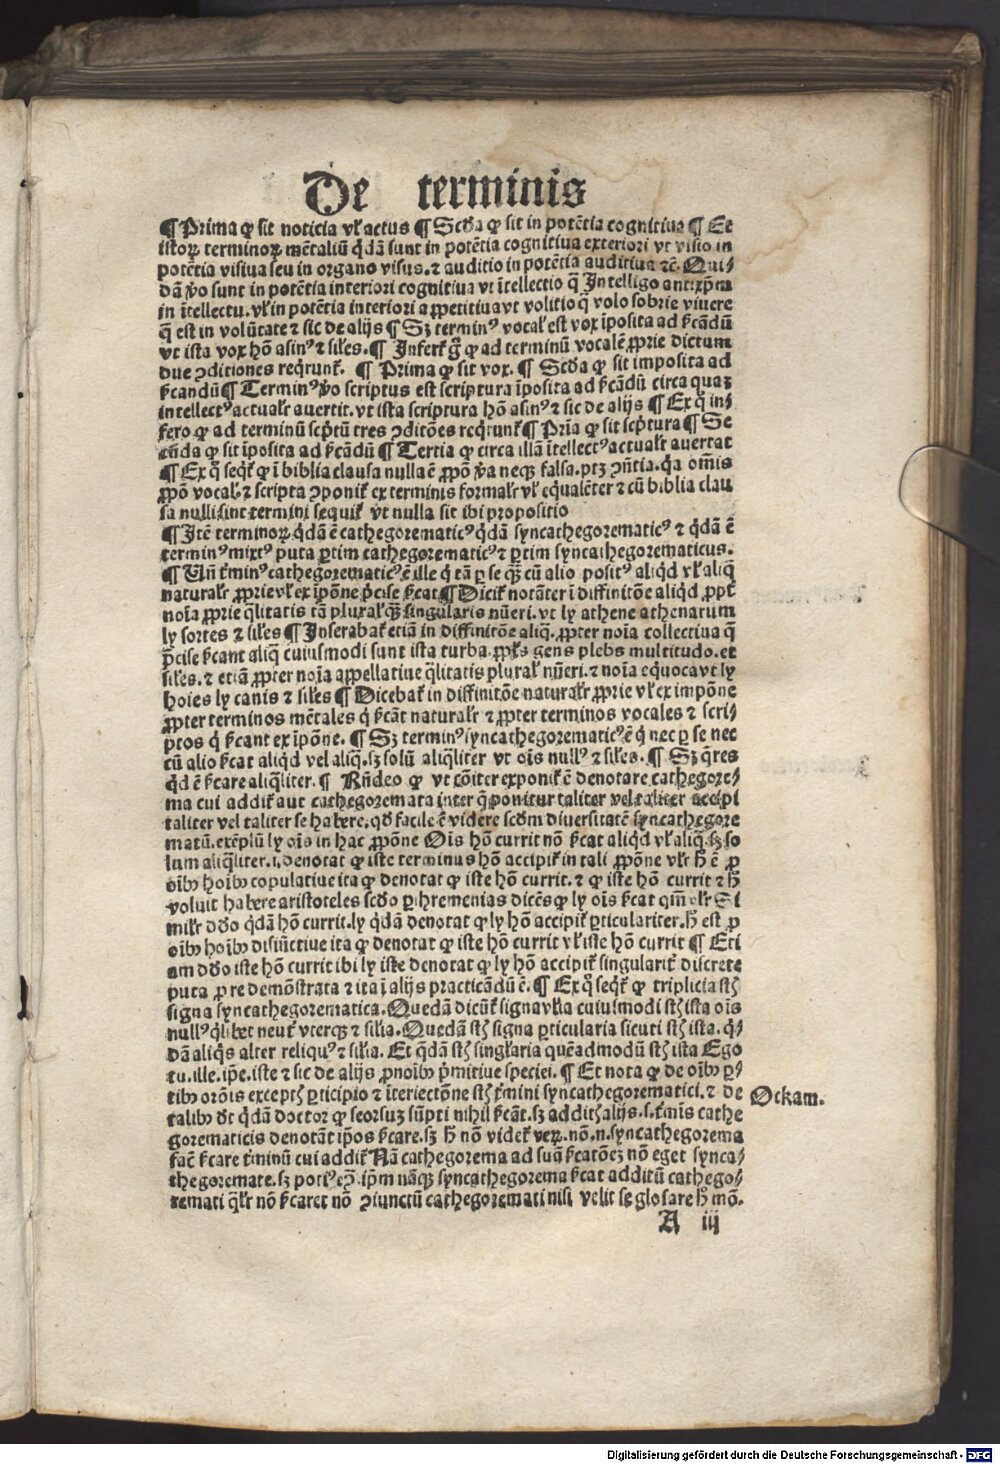 De terminis
¶ Prima ꝙ sit noticia vl̕ actus ¶ Scd̕a ꝙ sit in potẽtia cognitiua ¶ Et
istoꝝ terminoꝝ mẽtaliũ q̈dã sunt in potẽtia cognitiua exteriori vt visio in
potẽtia visiua seu in organo visus. ⁊ auditio in potẽtia auditiua ⁊c̃. Qui⸗
dã v̕o sunt in potẽtia interiori cognitiua vt ĩtellectio q̃ Intelligo antixp̃m
in ĩtellectu. vl̕ in potẽtia interiori appetitiua vt volitio q̃ volo sobrie viuere
q̃ est in volũtate ⁊ sic de alijs ¶ Sꝫ termin⁹ vocal̕ est vox ĩposita ad s̕cãdũ
vt ista vox hõ asin⁹ ⁊ sil̕es. ¶ Infert̕ g̊ ꝙ ad terminũ vocalẽ ꝓprie dictum
due ꝯditiones req̇runt̕. ¶ Prima ꝙ sit vox. ¶ Scd̕a ꝙ sit imposita ad
s̕candũ ¶ Termin⁹ v̕o scriptus est scriptura ĩposita ad s̕cãdũ circa quaꝫ
intellect⁹ actualr̕ auertit. vt ista scriptura hõ asin⁹ ⁊ sic de alijs ¶ Ex q̊ in⸗
fero ꝙ ad terminũ scp̕tũ tres ꝯditões req̇runt̕ ¶ Prĩa ꝙ sit scp̕tura ¶ Se
cũda ꝙ sit ĩposita ad s̕cãdũ ¶ Tertia ꝙ circa illã ĩtellect⁹ actualr̕ auertat
¶ Ex q̊ seq̇t̕ ꝙ ĩ biblia clausa nulla ẽ ꝓpõ v̕a neqꝫ falsa. ptꝫ ꝯñtia. q̕a om̃is
ꝓpõ vocal̕ ⁊ scripta ꝯponit̕ ex terminis formalr̕ vl̕ eq̇ualẽter ⁊ cũ biblia clau
sa nulli sint termini sequit̕ vt nulla sit ibi propositio
¶ Itẽ terminoꝝ q̇dã ẽ cathegorematic⁹ q̇dã syncathegorematic⁹ ⁊ q̇dã ẽ
termin⁹ mixt⁹ puta ꝑtim cathegorematic⁹ ⁊ ꝑtim syncathegorematicus.
¶ Uñ t̕min⁹ cathegorematic⁹ ẽ ille q̇ tã ꝑ se q̃ꝫ cũ alio posit⁹ aliq̇d vl̕ aliq̃
naturalr̕ ꝓprie vl̕ ex ĩpõne p̕cise s̕cat ¶ Dicit̕ notãter ĩ diffinitõe aliq̇d ꝓpt̕
noĩa ꝓprie q̈litatis tã plural̕ q̃ꝫ singularis nũeri. vt ly athene athenarum
ly sortes ⁊ sil̕es ¶ Inserabat̕ etiã in diffinitõe aliq̃. ꝓpter noĩa collectiua q̃
p̃cise s̕cant aliq̃ cuiusmodi sunt ista turba. ppl̕s gens plebs multitudo. et
sil̕es. ⁊ etiã ꝓpter noĩa appellatiue q̈litatis plural̕ nũeri. ⁊ noĩa equoca vt ly
hoies ly canis ⁊ sil̕es ¶ Dicebat̕ in diffinitõe naturalr̕ ꝓprie vl̕ ex impõne
ꝓpter terminos mẽtales q̇ s̕cãt naturalr̕ ⁊ ꝓpter terminos vocales ⁊ scri⸗
ptos q̇ s̕cant ex ĩpõne. ¶ Sꝫ termin⁹ syncathegorematic⁹ ẽ q̇ nec ꝑ se nec
cũ alio s̕cat aliq̇d vel aliq̃. sꝫ solũ aliq̈liter vt oĩs null⁹ ⁊ sil̕es. ¶ Sꝫ q̈res
q̇d ẽ s̕care aliq̈liter. ¶ Rñdeo ꝙ vt cõiter exponit̕ ẽ denotare cathegore⸗
ma cui addit̕ aut cathegoremata inter q̃ ponitur taliter vel taliter accipi
taliter vel taliter se habere. qd̕ facile ẽ videre scd̕m diuersitatẽ syncathegore
matũ. exẽplũ ly oĩs in hac ꝓpõne Oĩs hõ currit nõ s̕cat aliq̇d vl̕ aliq̃. sꝫ so
lum aliq̈liter. i. denotat ꝙ iste terminus hõ accipit̕ in tali ꝓpõne vlr̕ h̕ ẽ ꝓ
oĩbꝰ hoĩbꝰ copulatiue ita ꝙ denotat ꝙ iste hõ currit. ⁊ ꝙ iste hõ currit ⁊ h̕
voluit habere aristoteles scd̕o ꝑihremenias dicẽs ꝙ ly oĩs s̕cat qm̃ vlr̕ Si
milr̕ dd̕o q̇dã hõ currit. ly q̇dã denotat ꝙ ly hõ accipit̕ ꝑticulariter. h̕ est ꝓ
oĩbꝰ hoĩbꝰ disiũctiue ita ꝙ denotat ꝙ iste hõ currit vl̕ iste hõ currit ¶ Eti
am dd̕o iste hõ currit ibi ly iste denotat ꝙ ly hõ accipit̕ singularit̕ discrete
puta ꝓ re demõstrata ⁊ ita ĩ alijs practicãdũ ẽ. ¶ Ex q̊ seq̇t̕ ꝙ triplicia st̕
signa syncathegorematica. Quedã dicũt̕ signa vl̕ia cuiusmodi st̕ ista oĩs
null⁹ q̇libet neut̕ vterqꝫ ⁊ sil̕ia. Quedã st̕ signa ꝑticularia sicuti st̕ ista. q̇⸗
dã aliq̇s alter reliqu⁹ ⁊ sil̕ia. Et q̈dã st̕ singl̕aria quẽadmodũ st̕ ista Ego
tu. ille. ip̃e. iste ⁊ sic de alijs ꝓnoĩbꝰ p̕mitiue speciei. ¶ Et nota ꝙ de oĩbꝰ ꝑ⸗
tibꝰ orõis except̕ ꝑticipio ⁊ ĩteriectõne st̕ t̕mini syncathegorematici. ⁊ de
talibꝰ d̕t q̇dã doctor ꝙ seorsuꝫ sũpti nihil s̕cãt. sꝫ addit̕ alijs. s. t̕mĩs cathe
gorematicis denotãt ip̃os s̕care. sꝫ h̕ nõ videt̕ veꝝ. nõ. n. syncathegorema
fac̕ s̕care t̕minũ cui addit̕ Nã cathegorema ad suã s̕catõeꝫ nõ eget synca⸗
thegoremate. sꝫ poti⁹ eꝯ̃. ip̃m nãqꝫ syncathegorema s̕cat additũ cathego⸗
remati q̈lr̕ nõ s̕caret nõ ꝯiunctũ cathegoremati nisi velit se glosare h̕ mõ.
Ockam.
A iij
Digitalisierung gefördert durch die Deutsche Forschungsgemeinschaft - DFG